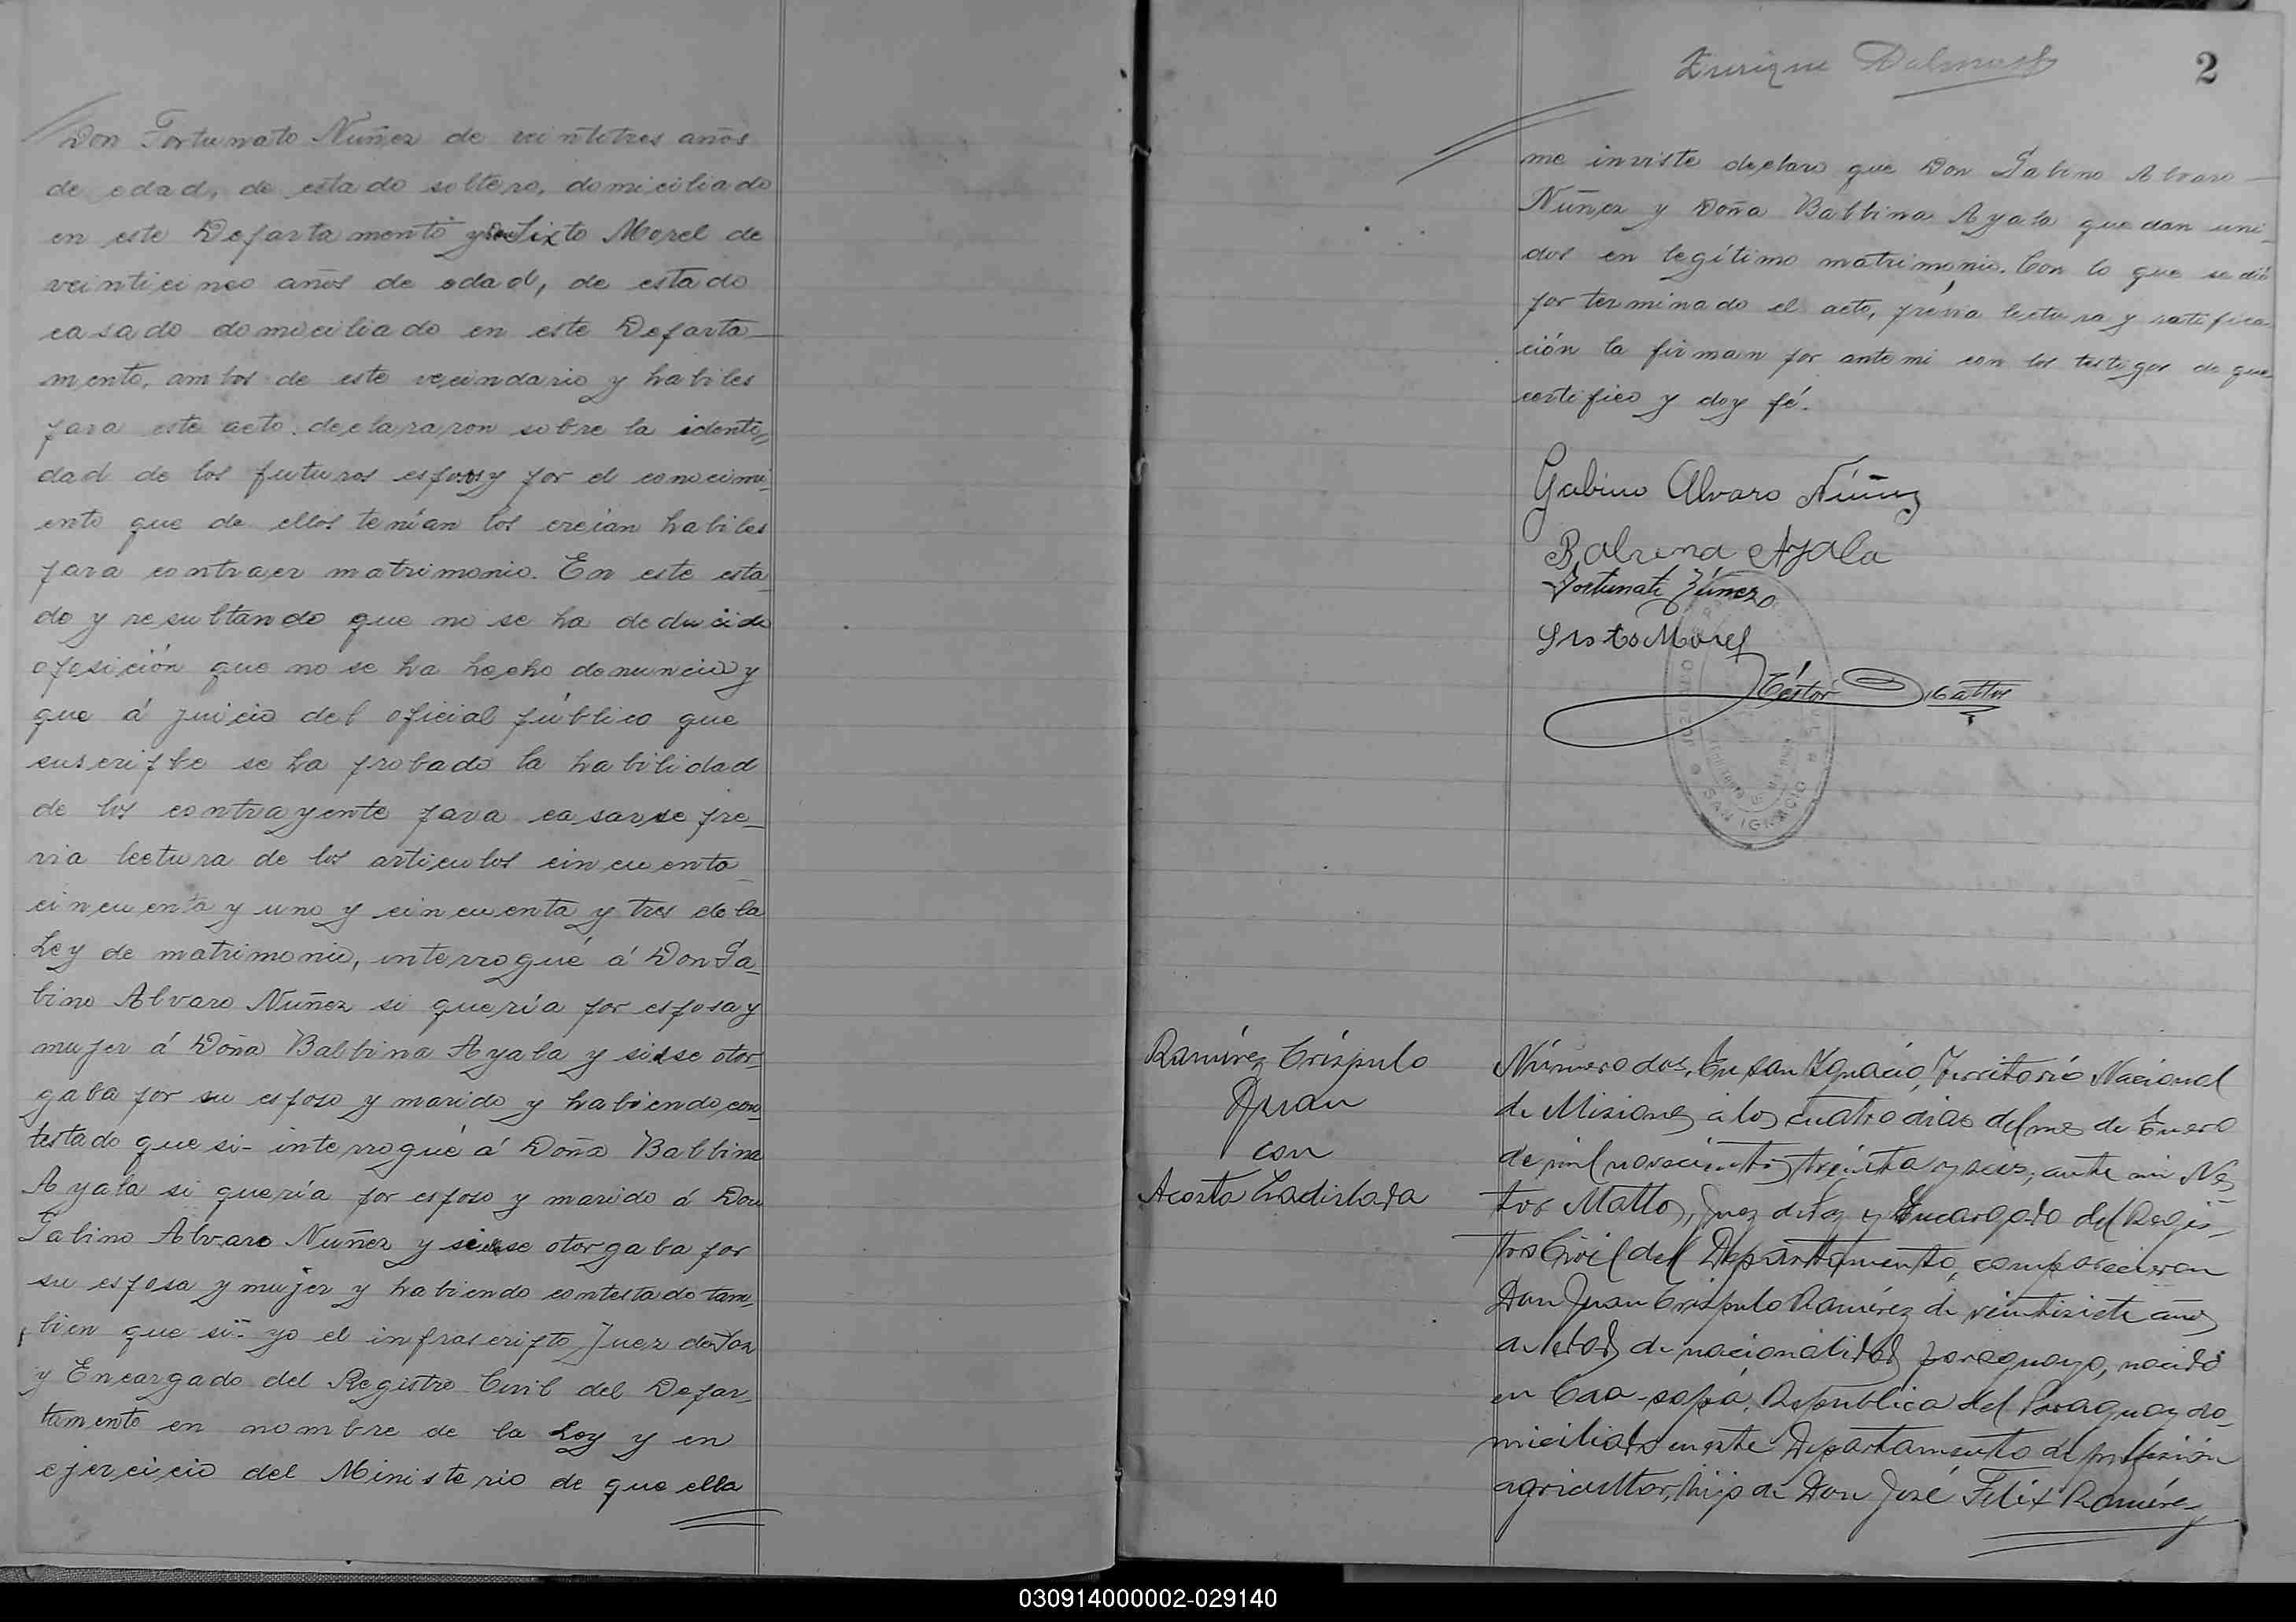 Don Fortunato Nuñez de veintitres años
de edad, de estado soltero, domiciliado
en este Departamento y Don Sixto Morel de
veinticinco años de edad, de estado
casado domociliado en este Departa
mento, ambos de este vecindario y habiles
para este acto. declararon sobre la identi
dad de los futuros esposos y por el conocimi
ento que de ellos tenían los creían habiles
para contraer matrimonio. En este esta
do y resultando que no se ha deducido
oposición que no se ha hecho denuncia y
que á juicio del oficial público que
suscripbe se ha probado la habilidad
de los contrayente para casarse pre
via lectura de los articulos cincuenta
cincuenta y uno y cincuenta y tres de la
Ley de matrimonio, interrogué á Don Ga
bino Alvaro Nuñez si quería por esposa y
mujer á Doña Balbina Ayala y si se otor
gaba por su esposo y marido y habiendo con
testado que si- interrogué á Doña Balbina
Ayala si quería por esposo y marido á Don
Gabino Alvaro Nuñez y si se otorgaba por
su esposa y mujer y habiendo contestado tam
bien que sí- yo el infrascripto Juez de Paz
y Encargado del Registro Civil del Depar
tamento en nombre de la Ley y en
ejercicio del Ministerio de que ella
Enrique
2
me inviste declaro que Don Gabino Alvaro
Nuñez y Doña Balbina Ayala quedan uni
dos en legítimo matrimonio. Con lo que se dió
por terminado el acto, prévia lectura y ratifica
ción la firman por ante mi con los testigos de que
certifico y doy fé.
Gabino Alvaro Núñez
Balvina Ayala
Fortunato Núnez
Sisto Morel
Néstor Mattos
JUZGADO
SAN IGNACIO
Ramírez Críspulo
Juan
con
Acosta Ladislada
Número dos, En San Ignacio, Territorio Nacional
de Misiones á los cuatro dias del mes de Enero
de mil novecientos treinta y seis, ante mi Nés
tor Mattos, Juez de Paz y Encargado del Regis
tro Civil del Departamento, comparecieron
Don Juan Críspulo Ramírez de veintisiete años
de edad, de nacionalidad paraguaya, nacido
en Caa-sapá, República del Paraguay do
miciliado en este Departamento de profesión
agricultor, hijo de Don José Felix Ramírez
030914000002-029140